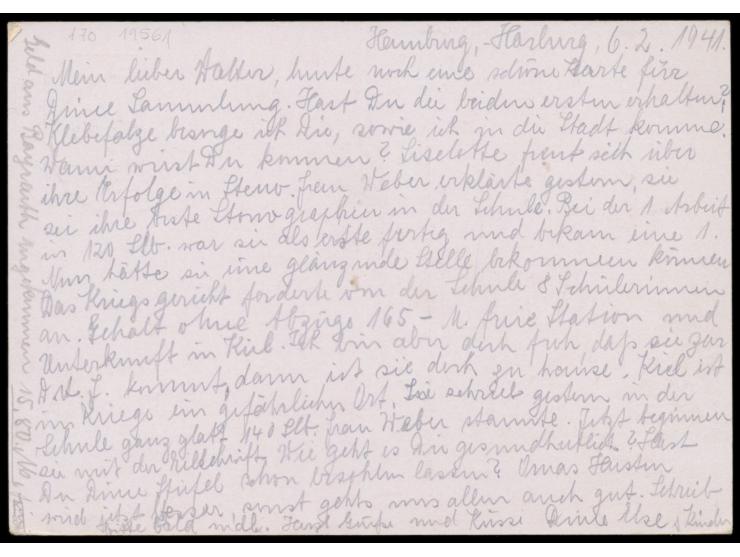 170 19561
Hamburg,-Harburg, 6.2.1941.
Mein lieber Walter, heute noch eine schöne Karte für
Deine Sammlung. Hast Du die beiden ersten erhalten?
Klebefalze besorge ich Dir, sowie ich in die Stadt komme.
Wann wirst Du kommen? Liselotte freut sich über
ihre Erfolge in Steno. Frau Weber erklärte gestern, sie
sei ihre beste Stenographin in der Schule. Bei der 1. Arbeit
in 120 Slb. war sie als erste fertig und bekam eine 1.
Nun hätte sie eine glänzende Stelle bekommen können
Das Kriegsgericht forderte von der Schule 8 Schülerinnen
an. Gehalt ohne Abzüge 165 – M. freie Station und
Unterkunft in Kiel. Ich bin aber doch froh, daß sie zur
kommt, dann ist sie doch zu hause. Kiel ist
im Kriege ein gefährlicher Ort. Sie schrieb gestern in der
Schule ganz glatt 140 Slb. Frau Weber staunte. Jetzt beginnen
sie mit der Eilschrift. Wie geht es Dir gesundheitlich? Hast
Du Deine Stiefel schon besohlen lassen? Omas Husten
wird jetzt besser, sonst gehts uns allen auch gut. Schreib
bitte bald mal. Herzl Grüße und Küsse Deine Ilse u Kinder
Geld aus Bayreuth angekommen 15,80